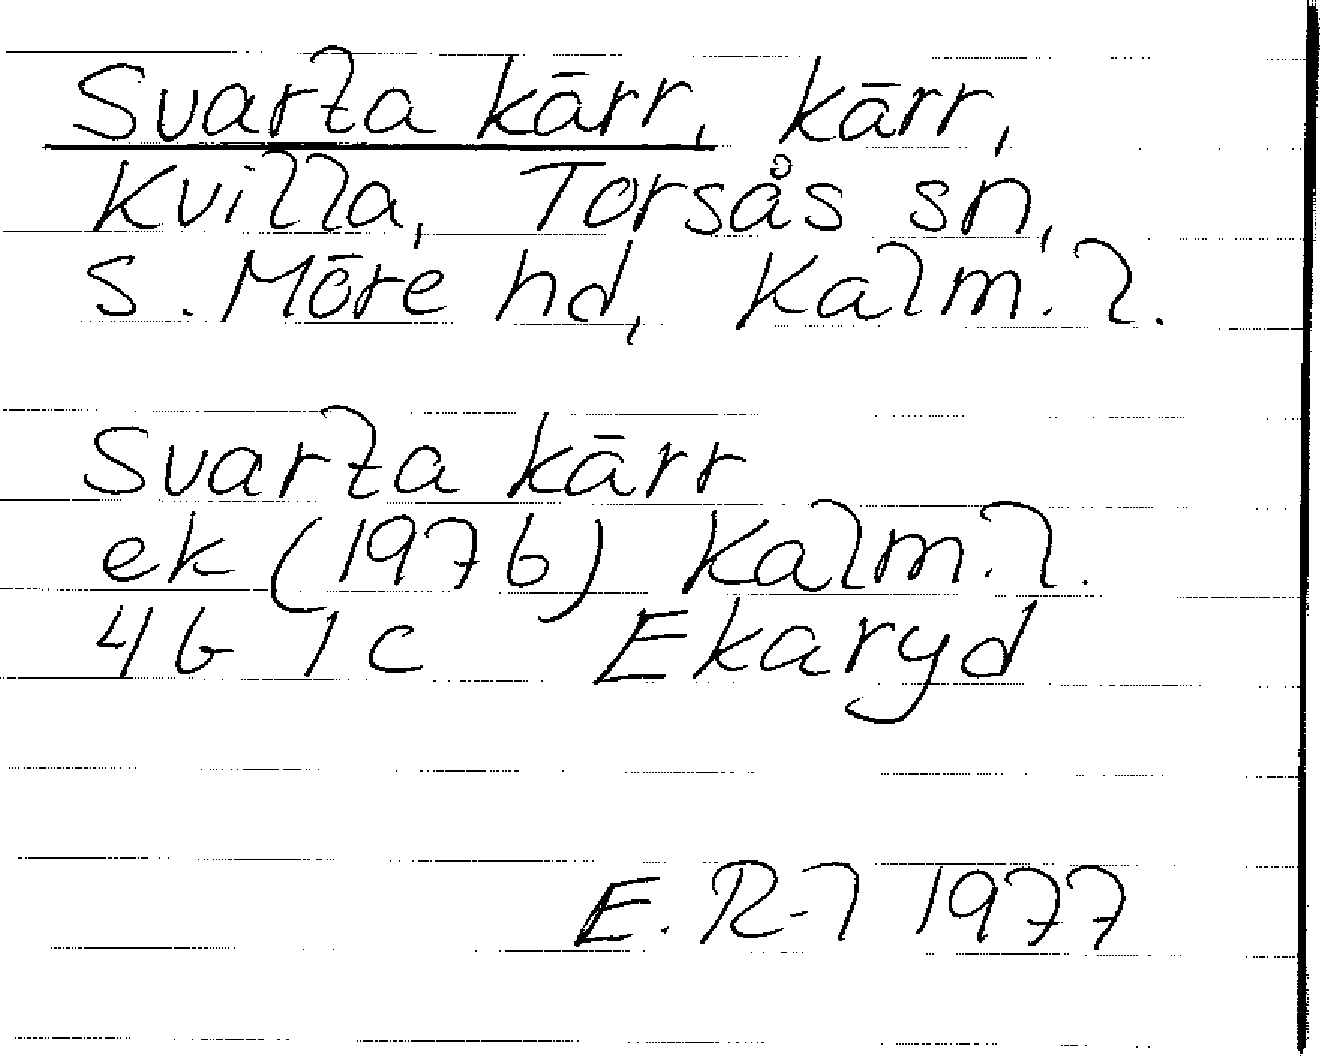 Svarta kärr, kärr,
Kvilla, Torsås sn,
S. Möre hd, Kalm. l.
Svarta kärr
ek (1976) Kalm. l.
4G 1c Ekaryd
E. R-l 1977